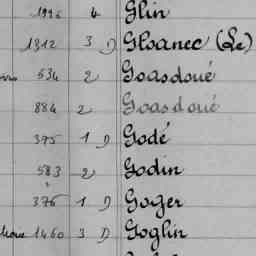 1996 4 Glin
1312 3 D Gloanec (Le)
534 2 Goasdoué
884 2 Goasdoué
375 1 D Godé
583 2 Godin
376 1 D Goger
1460 3 D Goglin